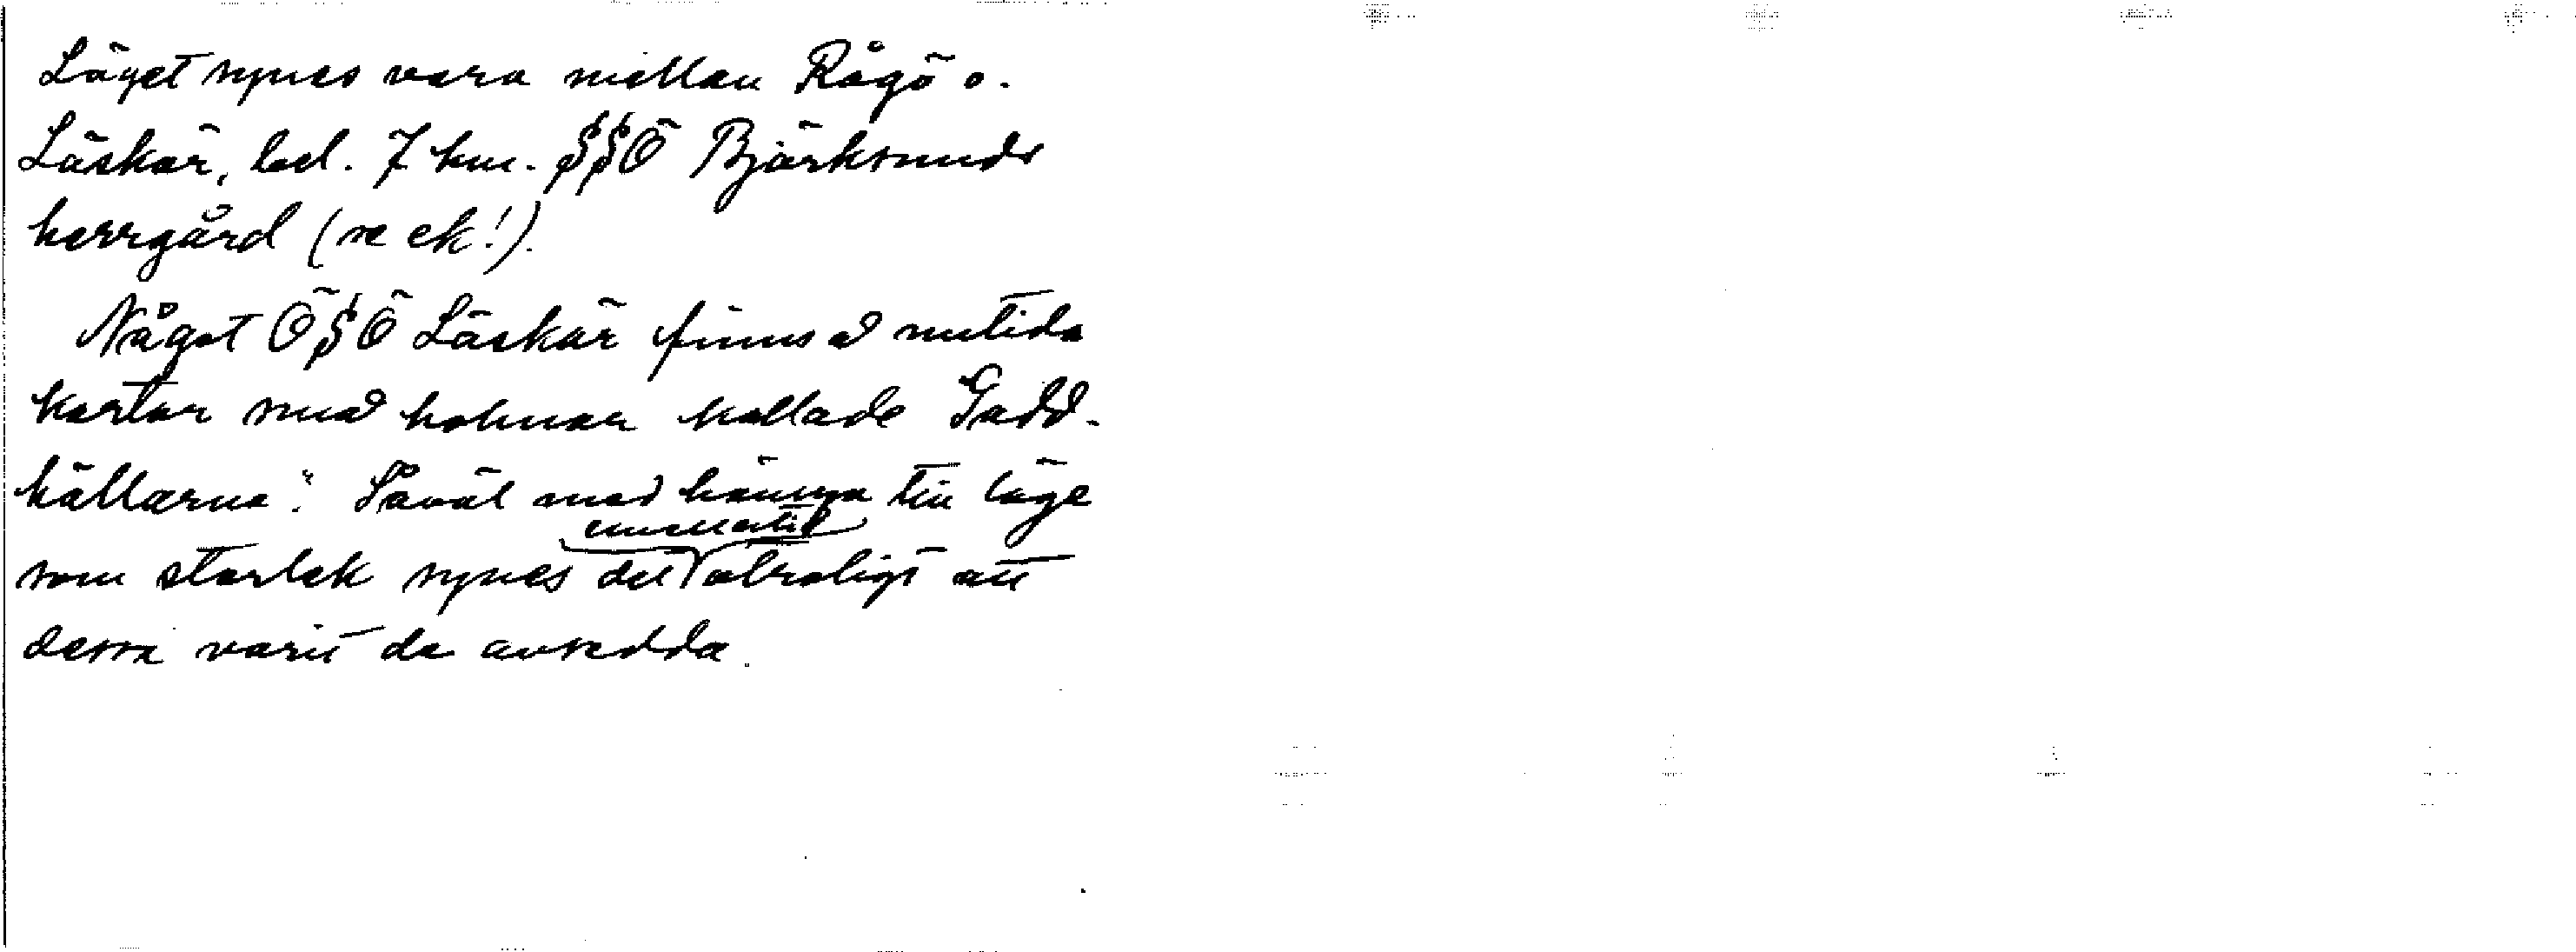 Läget synes vara mellan Rågö o.
Läskär, bel. 7 km. SSÖ Björksunds
herrgård (se ek!).
Något ÖSÖ Läskär finns å nutida
kartor små holmar kallade Gadd-
hällarna". Såväl med hänsyn till läge
emellertid
som storlek synes det otroligt att
dessa varit de avsedda.